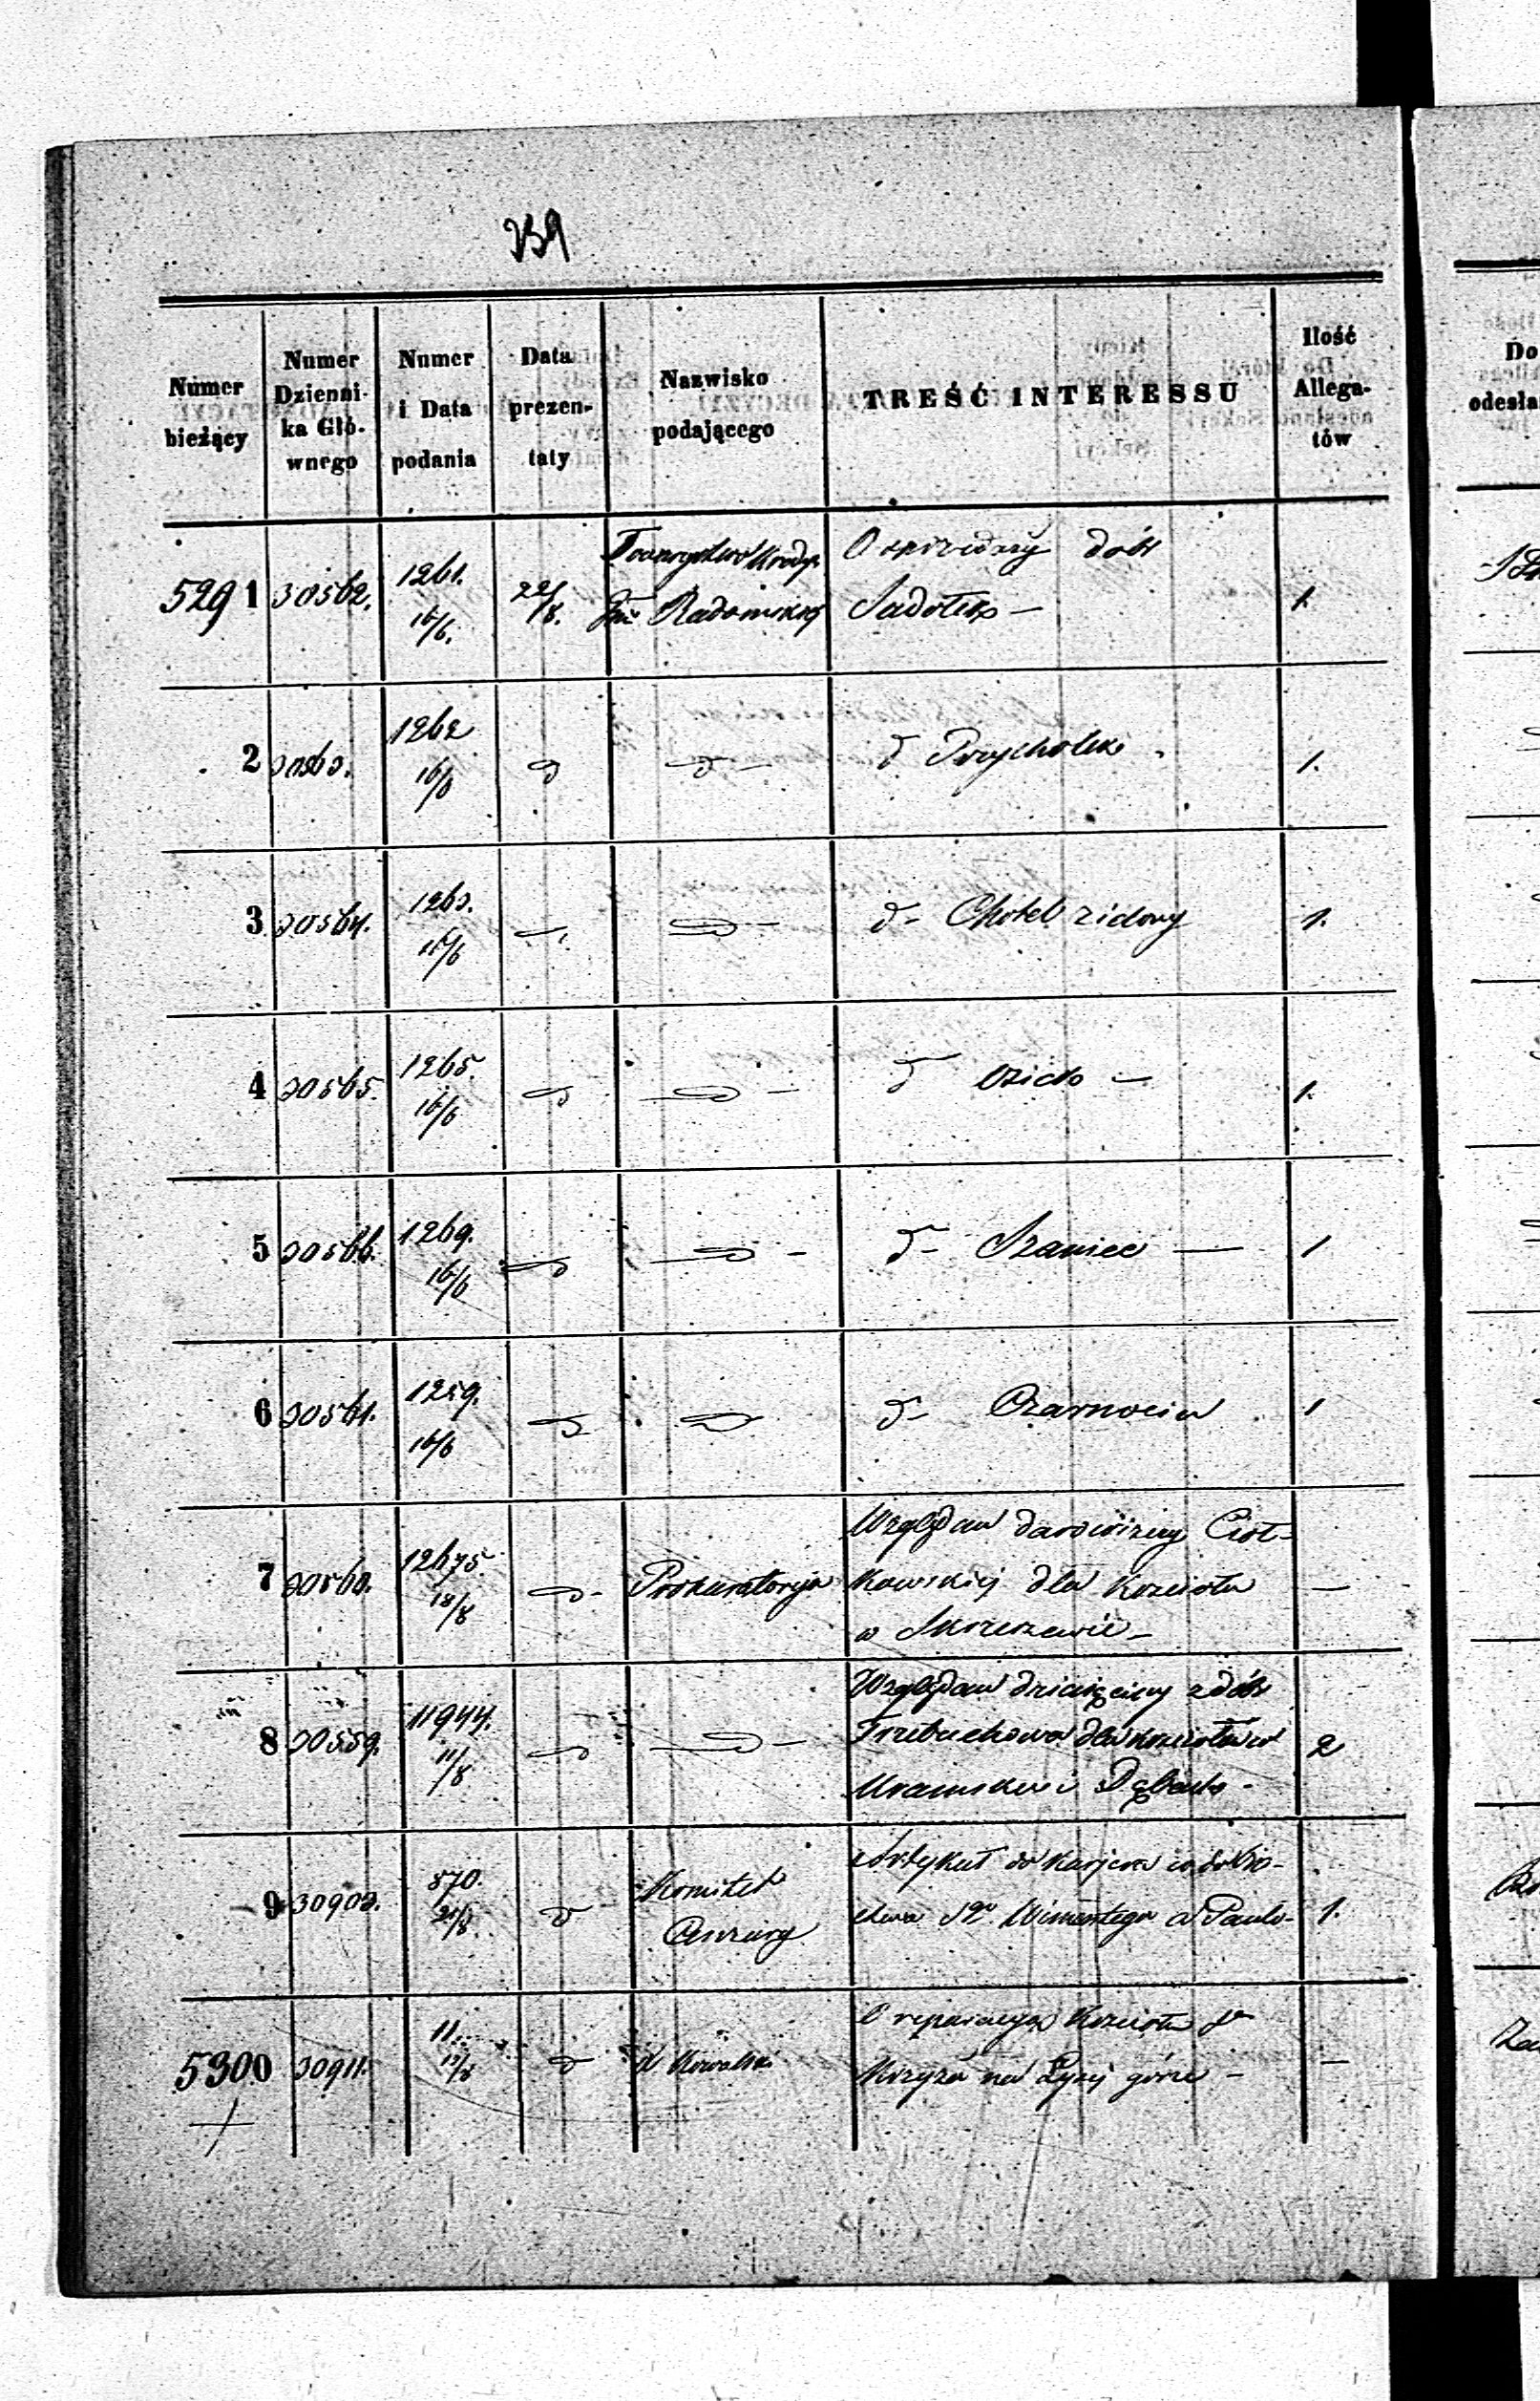 239
Numer bieżący
Numer Dzienni- ka Głó- wnego
Numer i Data podania
Data prezen- taty
Nazwisko podającego
TREŚĆ INTERESSU
Ilość Allega- tów
5291 30562. 1261. 16/6. 22/8. Towarzystwo Kredy. Radomskiej O sprzedaży dóbr Sadołek — 1.
2 30563. 1262 16/8 d d d Przychołek 1.
3 30564. 1263. 16/6 d- Chotel zielony 1.
4 30565. 1265. 16/6 d —
1.
5 30566. 1269. 16/6 d- Szaniec — 1
6 30561. 1259. 16/6 d- Czarnocin 1
7 30560. 12675. 18/8 Prokuratorija
Względem darowizny Ciot-
kowskiej dla Kościoła —
w Skrzeszewie —
8 30559. 11944. 11/8
Względem dziesięciny z dóbr
Trzebuchowa dla kościołów 2
9 30903. 570. 21/8. d Komitet Cenzury
Artykuł do Kurjera
Sgo Wincentego a Paulo- 1.
5300 30911. 11. 12/8 d X Kowalski
O reparacyą Kościoła S
Krzyża na Łysej górze —